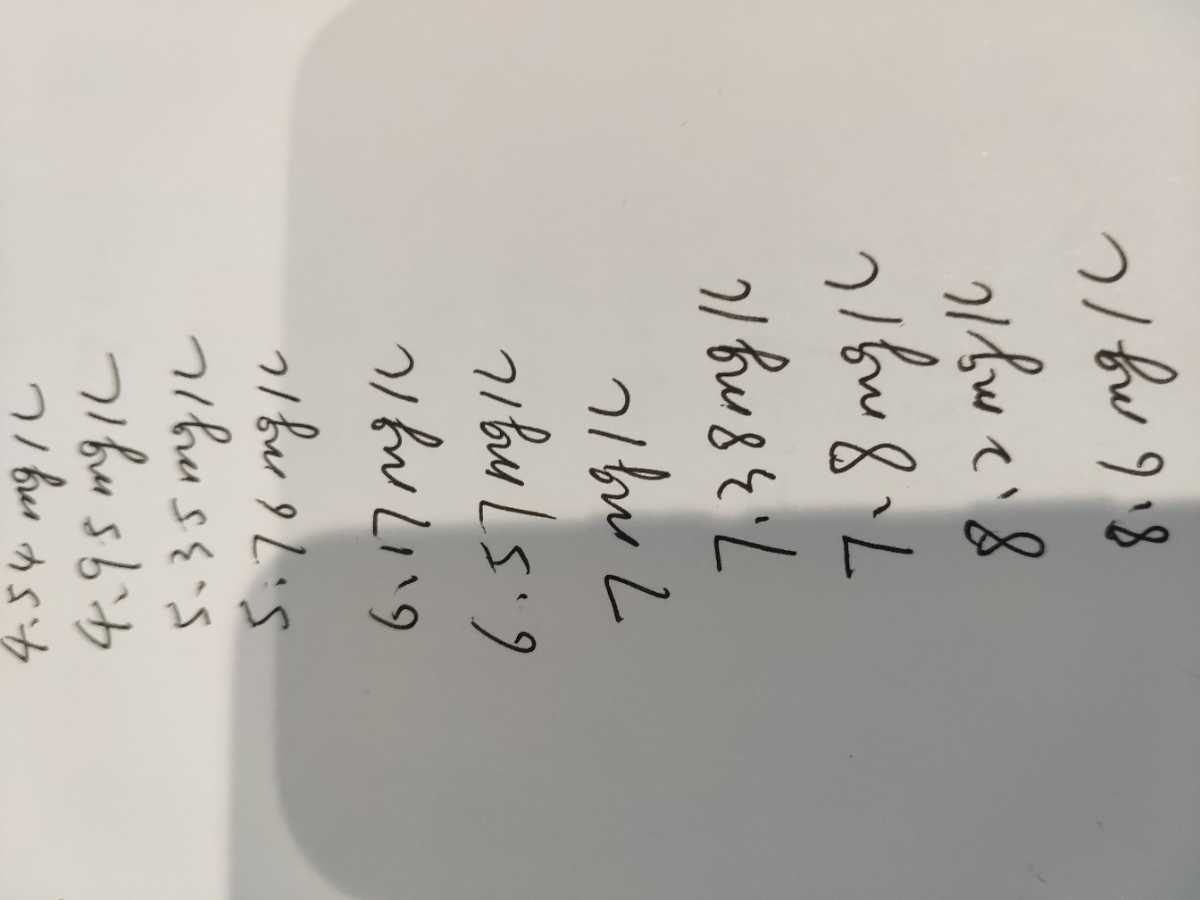 4.54 mg/L
4.95 mg/L
5.35 mg/L
5.76 mg/L
6.17 mg/L
6.57 mg/L
7 mg/L
7.38 mg/L
7.8 mg/L
8.2 mg/L
8.6 mg/L